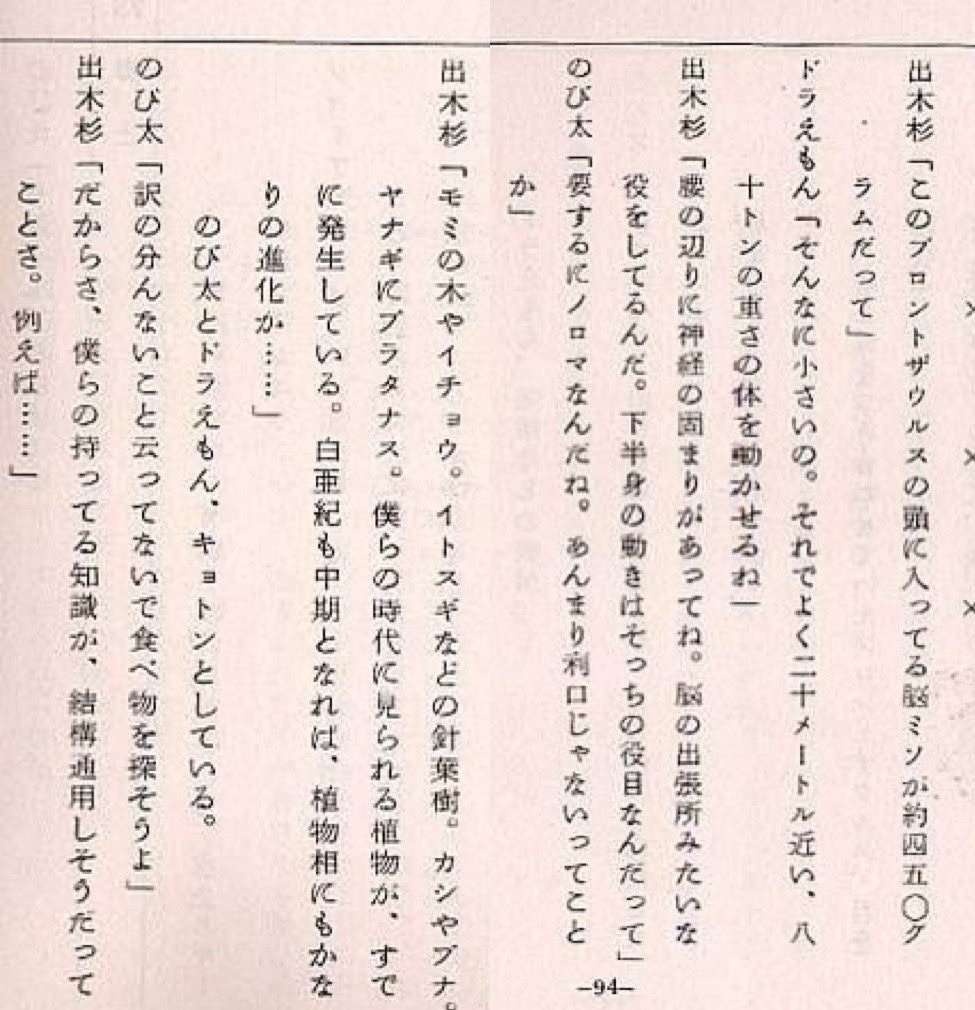 × × ×
出木杉「このブロントザウルスの頭に入ってる脳ミソが約四五〇グ
ラムだって」
ドラえもん「そんなに小さいの。それでよく二十メートル近い、八
十トンの重さの体を動かせるね」
出木杉「腰の辺りに神経の固まりがあってね。脳の出張所みたいな
役をしてるんだ。下半身の動きはそっちの役目なんだって」
のび太「要するにノロマなんだね。あんまり利口じゃないってこと
か」
—94—
出木杉「モミの木やイチョウ。イトスギなどの針葉樹。カシやブナ。
ヤナギにプラタナス。僕らの時代に見られる植物が、すで
に発生している。白亜紀も中期となれば、植物相にもかな
りの進化か……」
のび太とドラえもん、キョトンとしている。
のび太「訳の分んないこと云ってないで食べ物を探そうよ」
出木杉「だからさ、僕らの持ってる知識が、結構通用しそうだって
ことさ。例えば……」